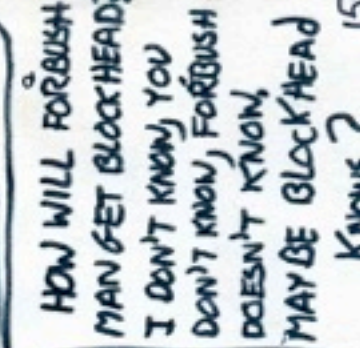 HOW WILL FORBUSH
MAN GET BLOCKHEAD?
I DON'T KNOW, YOU
DON'T KNOW, FORBUSH
DOESN'T KNOW,
MAYBE BLOCKHEAD
KNOWS?
15